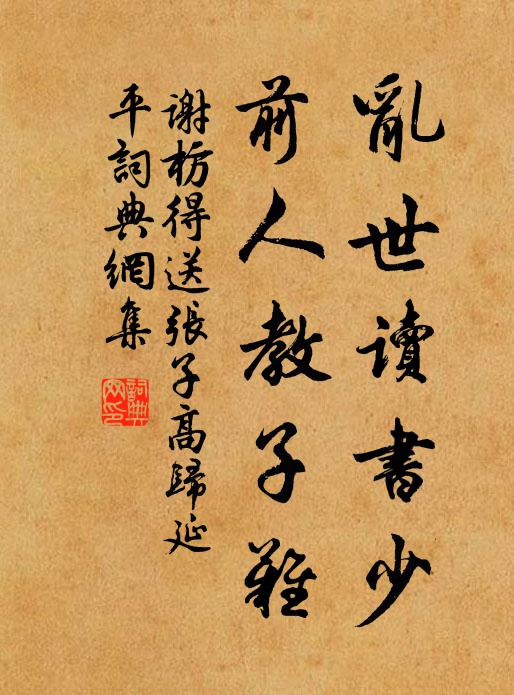 亂世讀書少
前人教子難
謝枋得送張子高歸延
平詞典網集
詞典網印